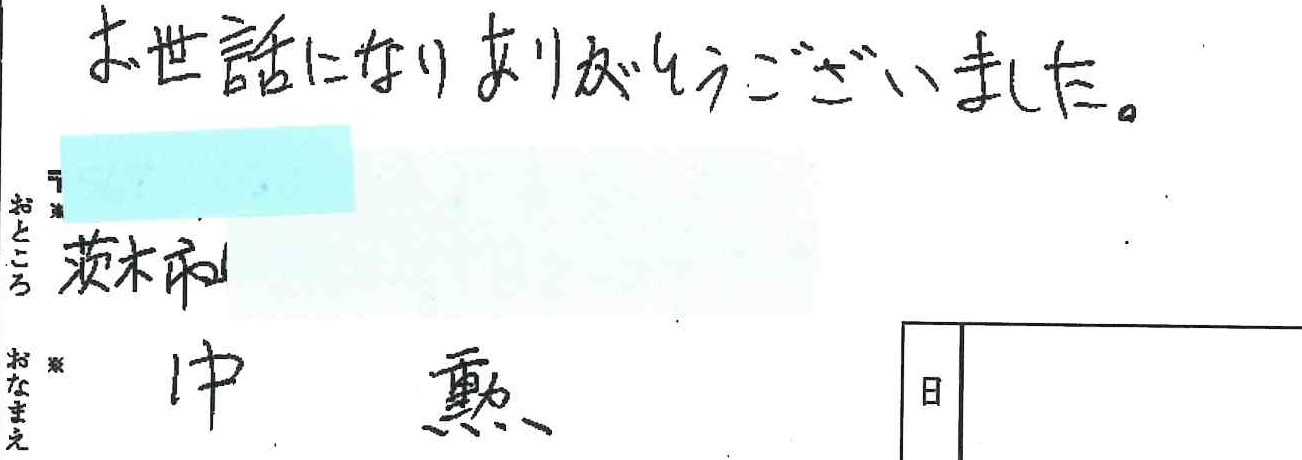 お世話になりありがとうございました。
〒
※
おところ
茨木市
おなまえ
※
中 勲
日